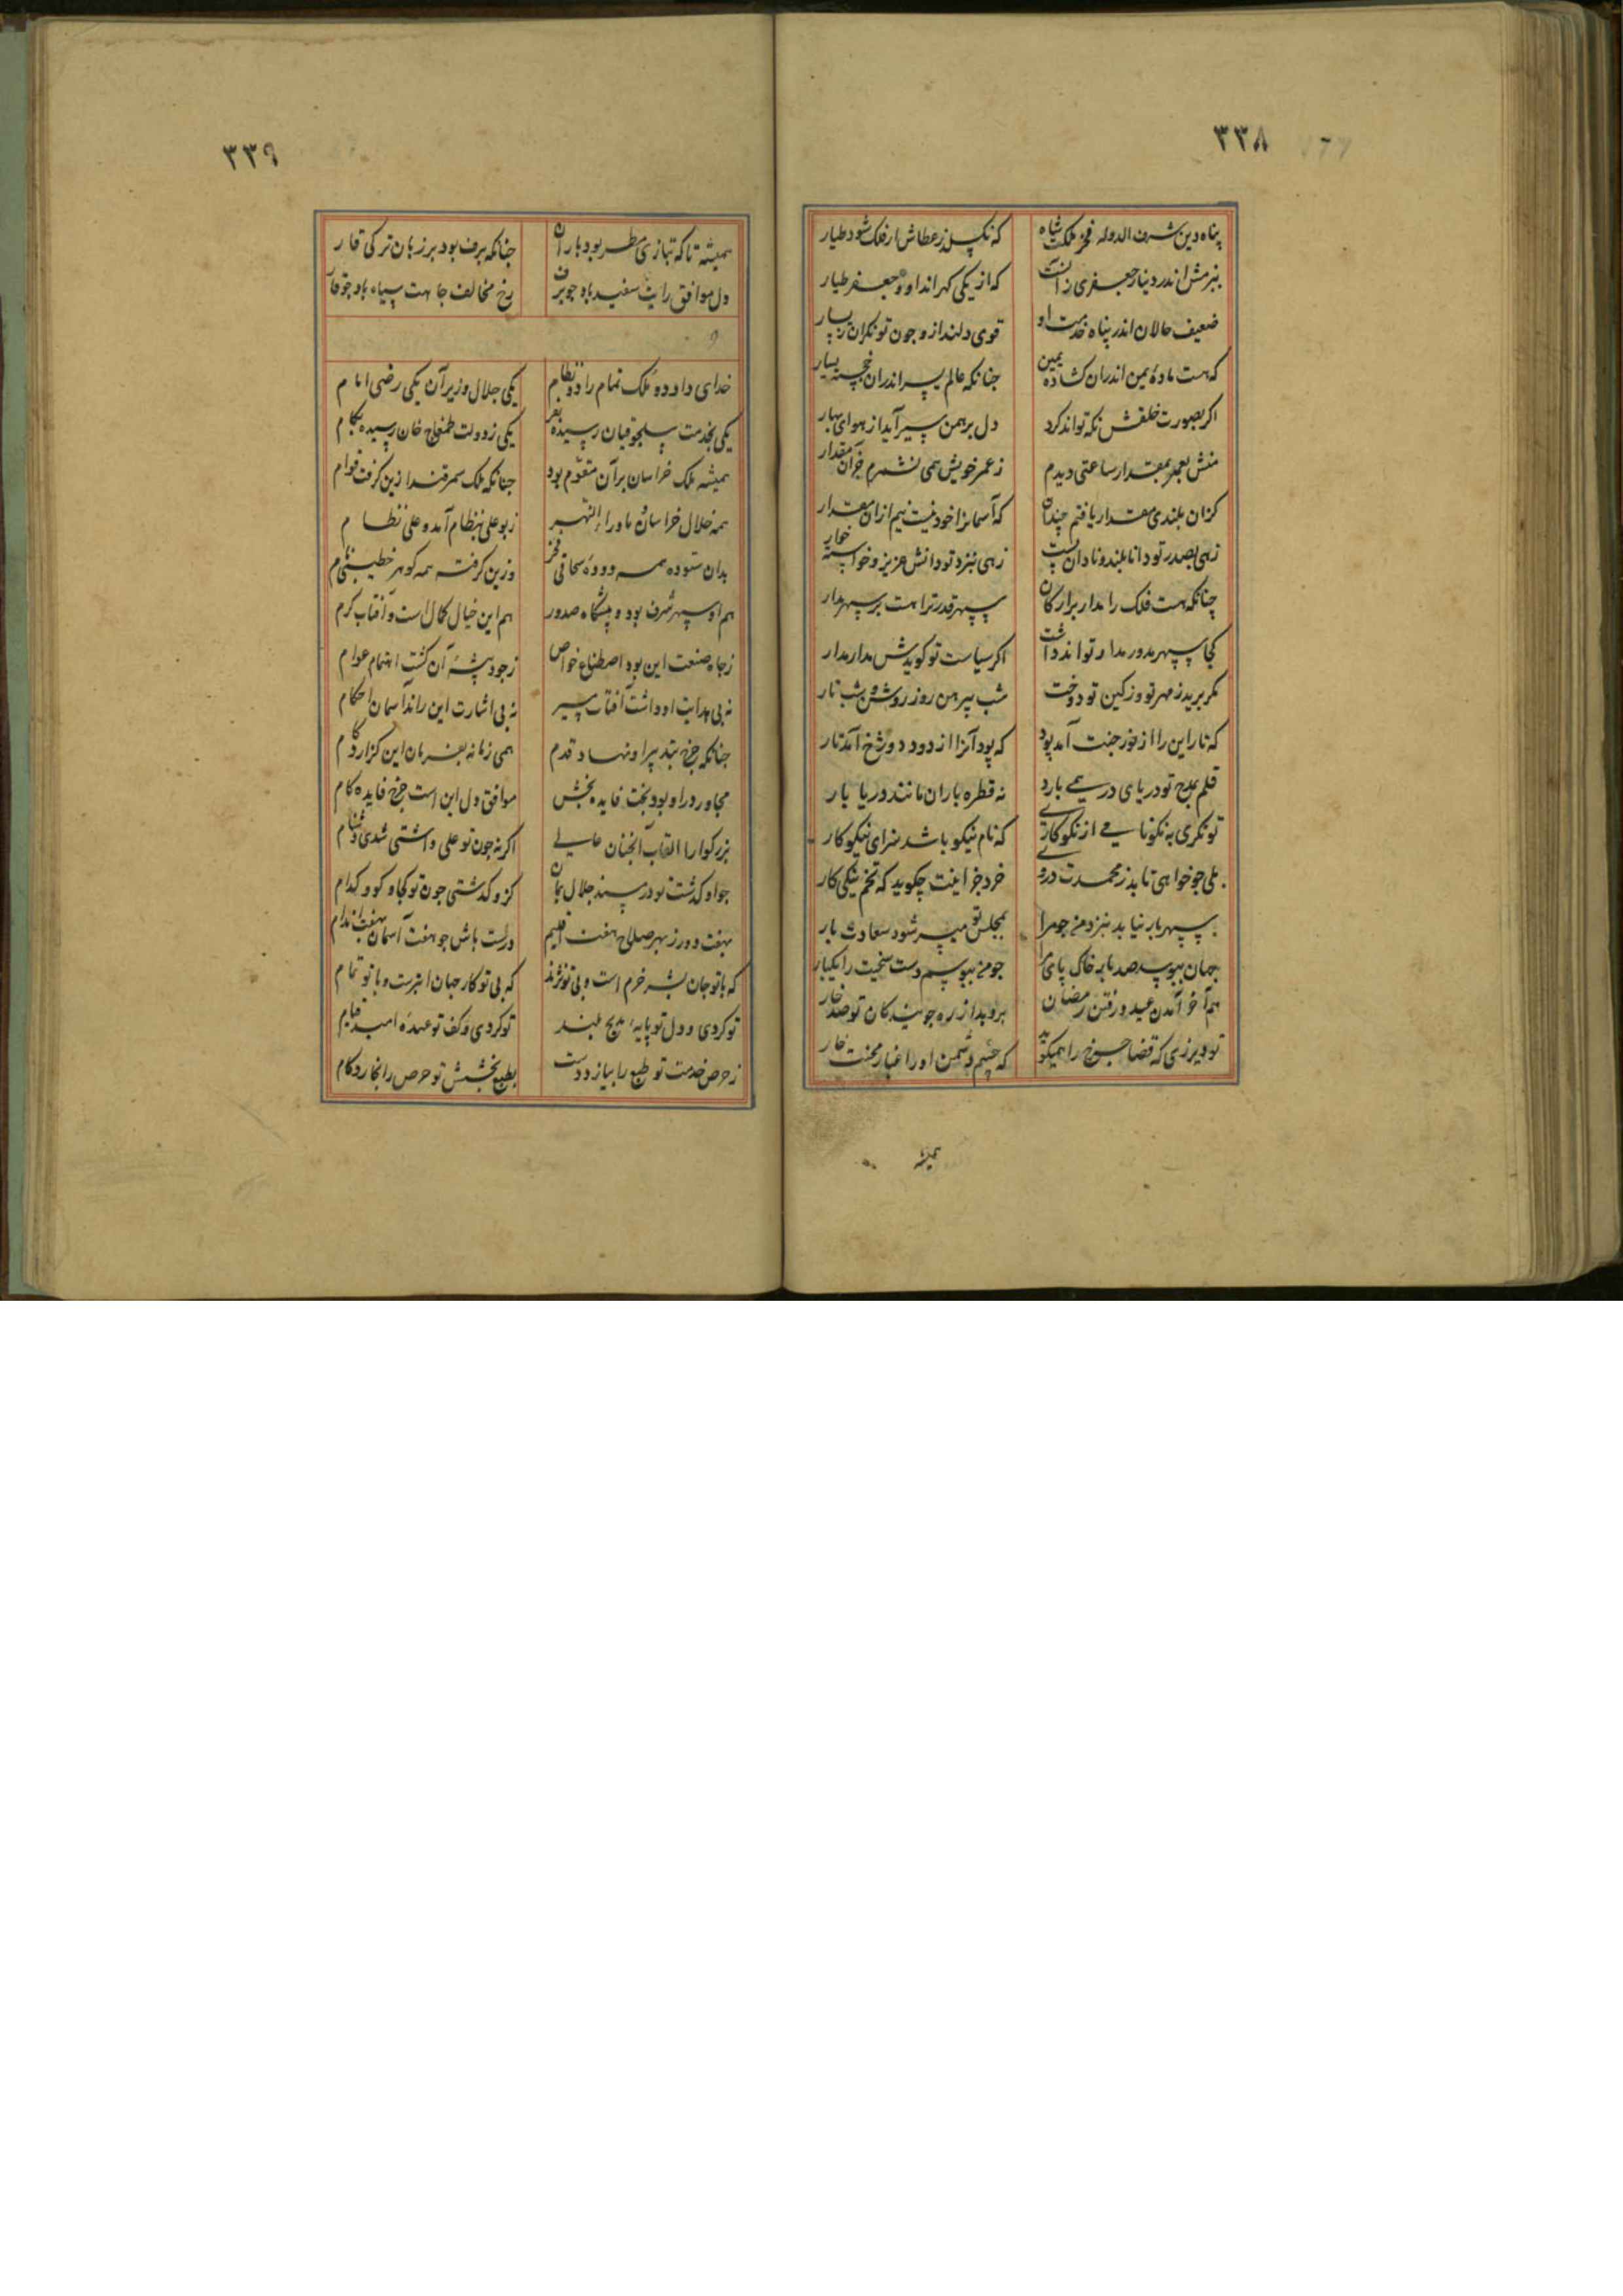 ۳۳۸
پناه دین شرف الدوله فخر ملکت شاه که نکسلد ز عطاش ار فلک شود طیار
ببزمش اندر دینار جعفری زانست که از یکی کهراند او و جعفر طیار
ضعیف حالان اندر پناه خدمت او قوی دلند ازو چون تونکران ز یسار
که هست مادهٔ یمن اندران کشاده یمین چنانکه عالم یسر اندران خجسته یسار
اکر بصورت خلقش نکه تواند کرد دل برهمن سیر آید از هوای بهار
منش بعمر بمقدار ساعتی دیدم ز عمر خویش همی نشمرم جز آن مقدار
کزان بلندی مقدار یافتم چندان که آسمانرا خود نیست نیم ازان مقدار
زهی بصدر تو دانا بلند و نادان پست زهی بنزد تو دانش عزیز و خواسته خوار
چنانکه هست فلک را مدار بر ارکان سپهر قدر ترا هست بر سپهر مدار
کجا سپهر مدور مدار تواند داشت اکر سیاست تو کویدش مدار مدار
مکر برید ز مهر تو وز کین تو دوخت شب پیرهن روز روشن و شب تار
که تار این را از خور جنت آمد پود که پود آنرا از دود دوزخ آمد تار
قلم بمدح تو دریای در همی بارد نه قطره باران مانند دریا بار
تونکری به نکونامی از نکوکاری که نام نیکو باشد سزای نیکوکار
بلی چو خواهی تا بدز محمدت دروی خرد جز اینت چکوید که تخم نیکی کار
سپهر بار نیابد بنزد من چو مرا بمجلس تو میسر شود سعادت بار
جهان ببوسد صد بار خاک پای مرا چو من ببوسم دست سخیت را یکبار
هم آخر آمدن عید و رفتن رمضان بروید از ره جویندکان تو صد خار
تو دیر زی که قضا چرخ را همیکوید که چشم دشمن او را غبار محنت خار
همیشه
۳۳۹
همیشه تا که بتازی مطر بود باران چنانکه برف بود بر زبان ترکی قار
دل موافق رایت سفید باد چو برف رخ مخالف جاهت سیاه باد چو قار
خدای داد دو ملک تمام را دو نظام یکی جلال وزیر آن یکی رضی انام
یکی بخدمت سلجوقیان رسیده بفر یکی ز دولت طمغاج خان رسیده بکام
همیشه ملک خراسان بر آن مقوّم بود چنانکه ملک سمرقند ازین کرفت قوام
همه خلال خراسان و ماوراء النهر ز بوعلی بنظام آمد و علی نظام
بدان ستوده همه دودهٔ سحاقی فخر وزین کرفته همه کوهر خطیبی نام
هم او سپهر شرف بود و پیشکاه صدور هم این خیال کمال است و آفتاب کرم
ز جاه صنعت این بود اصطناع خواص ز جود پیشهٔ آن کشت اهتمام عوام
نه بی هدایت او داشت آفتاب سپر نه بی اشارت این راند آسمان احکام
چنانکه چرخ بتدبیر او نهاد قدم همی زمانه بفرمان این کزارد کام
مجاور در او بود بخت فایده بخش موافق دل این است چرخ فایده کام
بزرکوارا القاب الجنان عالی اکر نه چون تو علی داشتی شدی دشنام
جواو کذشت تو در مسند جلال بمان کزو کذشتی چون تو کجا و کو و کدام
بهفت دور ز بهر صلاح هفت اقلیم درست باش چو هفت آسمان بهفت اندام
که با تو جان بشر خرم است و بی تو نژند که بی تو کار جهان ابترست و با تو تمام
تو کردی و دل تو پایهٔ مدیح بلند تو کردی و کف تو عهدهٔ امید قیام
ز حرص خدمت تو طبع را بیازد دست بطبع بخشش تو حرص را نخارد کام